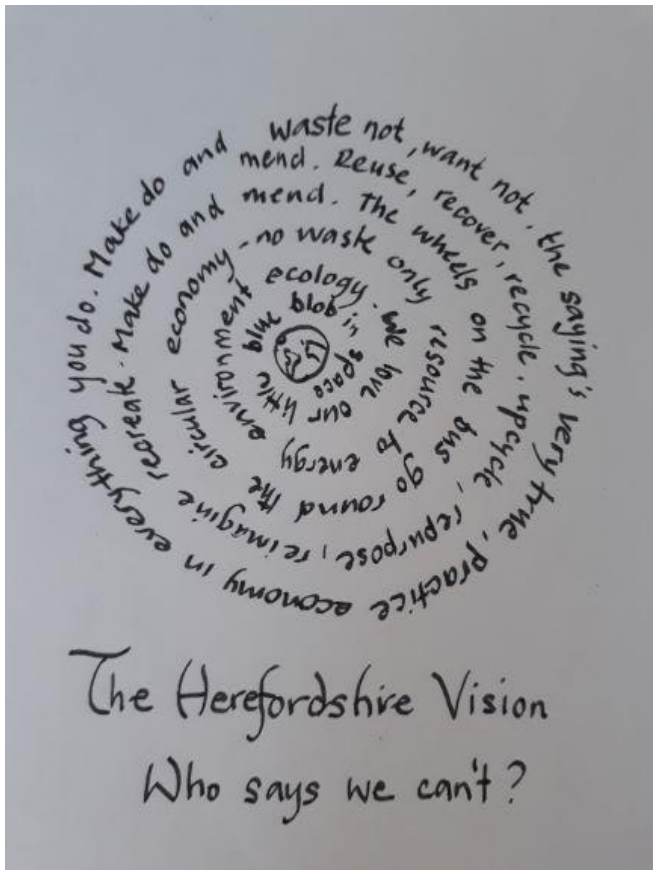 waste not, want not, the saying's very true, practice economy in everything you do. Make do and
mend. Reuse, recover, recycle, upcycle, repurpose, reimagine recreate. Make do and
mend. The wheels on the bus go round the circular economy -
no waste only resource to energy environment
ecology. We love our little
blue blob in space
The Herefordshire Vision
Who says we can't?